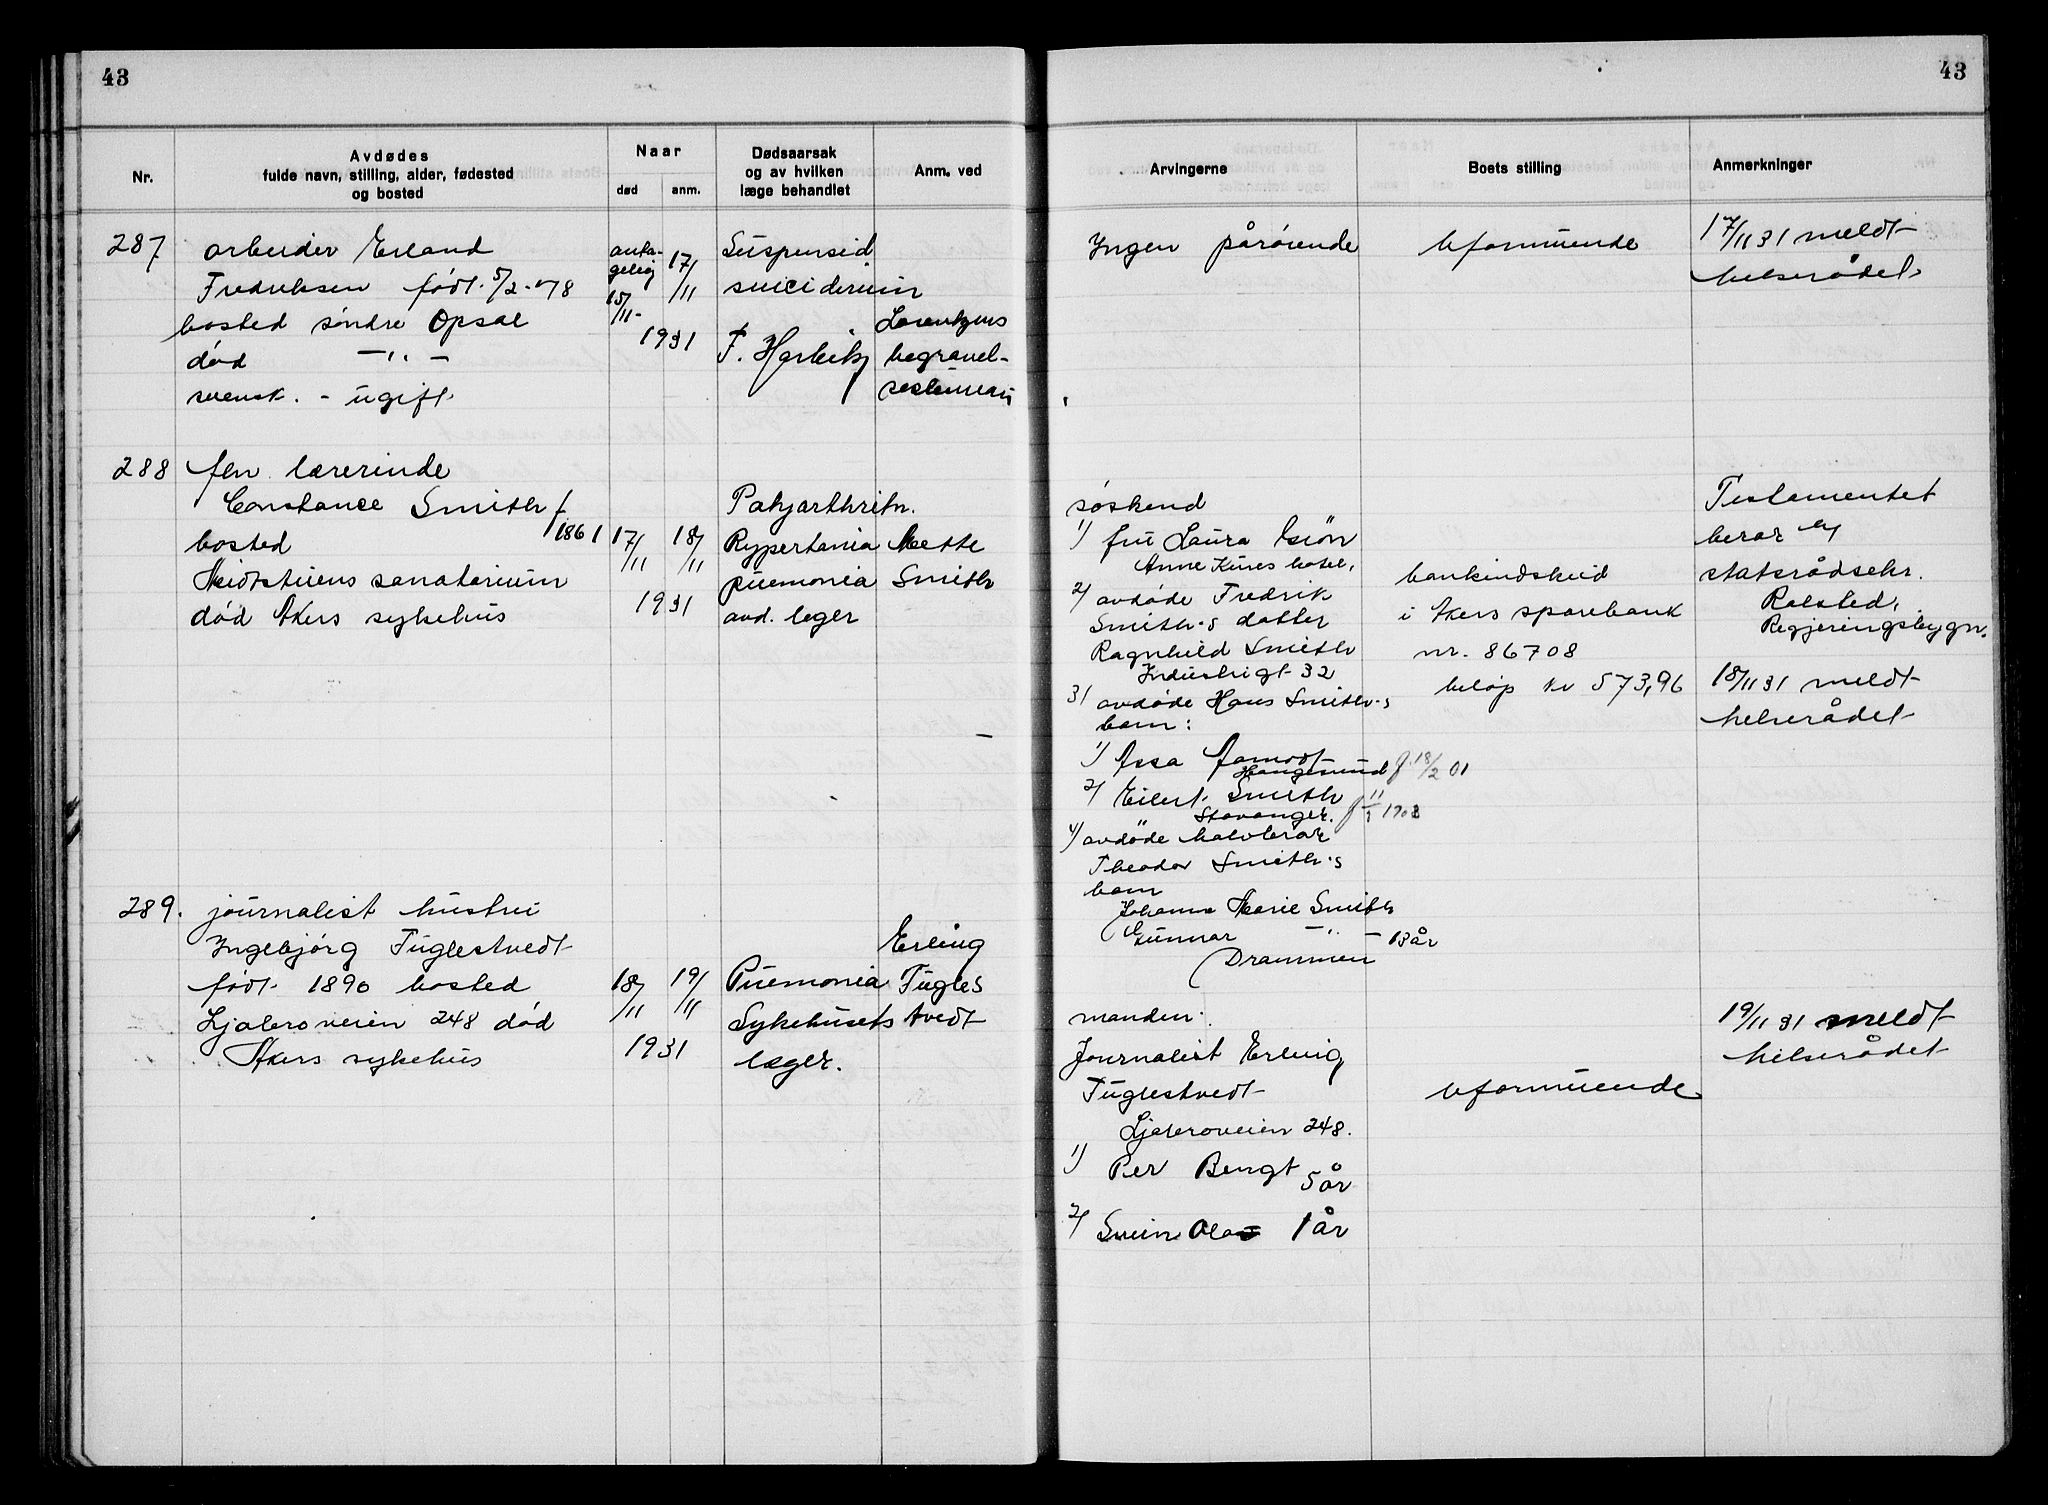 43
43
Nr.
Avdødes
fulde navn, stilling, alder, fødested
og bosted
Naar
død
anm.
Dødsaarsak
og av hvilken
læge behandlet
Anm. ved
Arvingerne
Boets stilling
Anmerkninger
287
arbeider Erland
Fredriksen født 5/2-78
bosted søndre Opsal
død -"-
svensk. - ugift
anta-
gelig
15/11-
17/11
1931
Suspensid
suicidium
F. Harbitz
Lorentzens
begravel-
Ingen pårørende
Uformuende
17/11 31 meldt
helserådet
288
fhn lærerinde
Constance Smith f.
1861
bosted
Midtstuens sanatorium
død Akers sykehus
17/11
18/11
1931
Rypertania
pnemonia
avd. leger
Mette
Smith
søskend
1) fru Laura
Anne Kures hotel,
2) avdøde Fredrik
Smith's datter
Ragnhild Smith
Industrigt 32
3) avdøde Hans Smith's
barn:
1) Assa Aamodt
Haugesund f. 18/2 01
2) Eilert Smith
Stavanger.
4) avdøde
Theodor Smith's
barn
Johanne Marie Smith
Gunnar -"- 13 år
Drammen
bankindskud
i Akers sparebank
nr. 86708
beløp kr 573,96
Testamentet
beror
statsrådsekr.
Rolsted,
Regjeringsbygn.
18/11 31 meldt
helserådet
289.
journalist hustru
Ingebjørg Fuglestvedt
født 1890 bosted
Ljabroveien 248 død
Akers sykehus
18/11
19/11
1931
Pnemonia
Sykehusets
læger.
Erling
Fugles
tvedt
manden:
Journalist Erling
Fuglestvedt
Ljabroveien 248.
1) Per Bengt
5 år
2) Svein Olav 1 år
Uformuende
19/11 31 meldt
helserådet